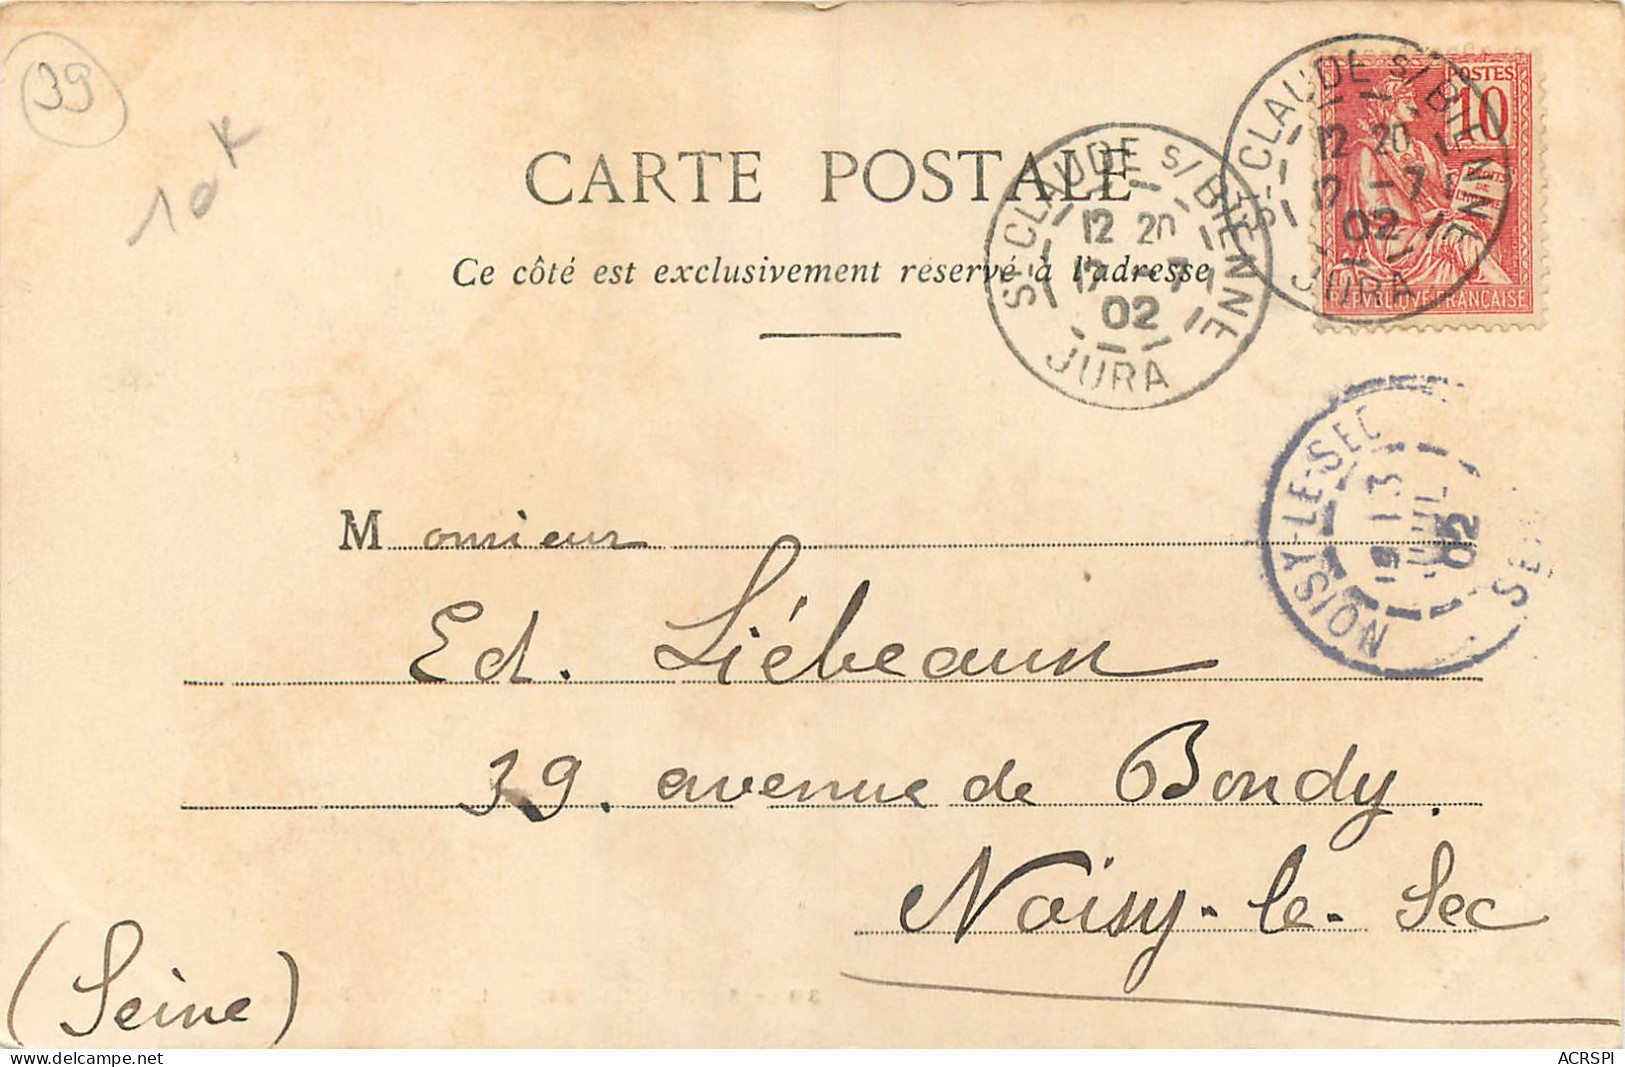 39
10 K
CARTE POSTALE
Ce côté est exclusivement reservé à l'adresse
ST-CLAUDE S/ BIENNE
12 20
12 -7
02
JURA
ST-CLAUDE S/ BIENNE
12 20
12 -7
02
JURA
POSTES
10
DROITS DE
REPVBLIQVE FRANÇAISE
NOISY-LE-SEC
13
JUIL
02
Monsieur
Ed. Liébeaux
39. avenue de Bondy.
Noisy-le-Sec
(Seine)
ACRSPI